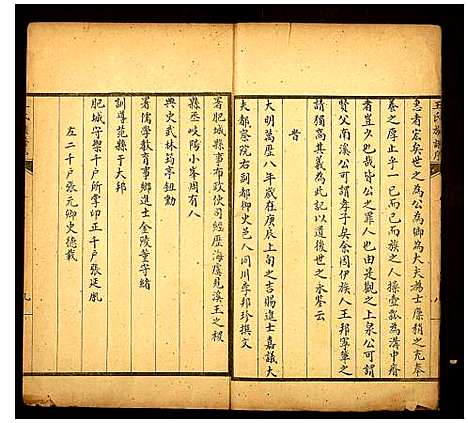 王氏族譜序
惠者宏矣世之為公為卿為大夫為士廩稍之充奉
養之厚止乎一己而已族之人操壺瓢為溝中瘠
者豈少也哉皆公之罪人也由是觀之上泉公可謂
賢父南溪公可謂孝子矣余因伊族人王邦寧輩之
請獨高其義為此記以遺後世之永鑒云
旹
大明萬歷八年歲在庚辰上旬之吉賜進士嘉議大
夫都察院右副都御史邑人同川李邦珍撰文
署肥城縣事布政使司經歷海虞見溪王之稷
縣丞岐陽小峯周有八
典史武林筠亭鈕勳
署儒學教育事鄉進士金陵董守緒
訓導范縣于大邦
肥城守禦千戶所掌印正千戶張延胤
左二千戶張元卿史德載